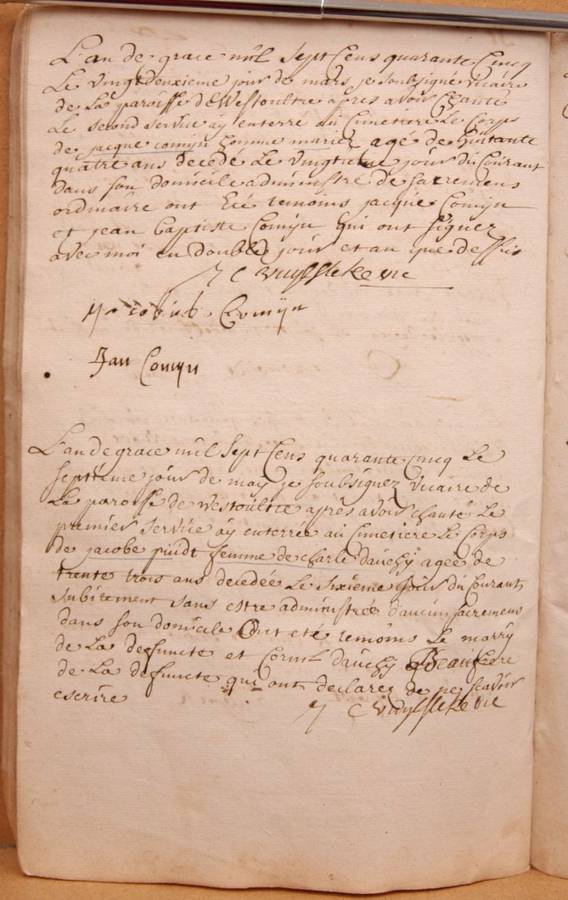 L'an de grace mil sept cens quarante cincq
Le vingtdeuxieme jour de mars je soubsigné vicaire
de La paroisse de Westoultre apres avoir chanté
Le second service ay enterré au Cimetiere Le Corps
de jacque comijn homme mariez agé de huitante
quatre ans decedé Le vingtieme jour du Courant
dans son domicile administré de sacremens
ordinaire ont été temoins jacque Comijn
et jean baptiste Comijn qui ont signez
avec moi en double jour et an que dessus
J C vuylsteke vic
Jacobus Comijn
Jan Comijn
L'an de grace mil sept Cens quarante Cincq Le
septieme jour de may je soubsignez vicaire de
La paroisse de Westoultre apres avoir chanté Le
premier service ay enterrée au Cimetiere Le Corps
de jacobe puidt femme de charle dauchy agée de
trente trois ans decedée Le sixieme jour du Courant
subitement sans estre administrée d'aucun sacremens
dans son domicile Ont eté temoins Le marry
de La defuncte et Cornil dauchy Beaufrere
de La defuncte qui ont declarez de ne scavoir
escrire J C vuylsteke vic